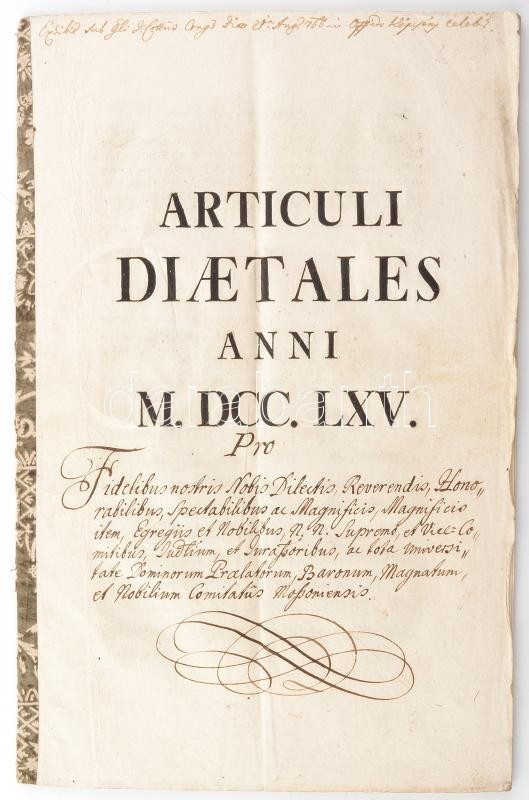 Exhib: sub Gli dCottus Congr die 21a Aug 766 in Oppido celebr.
ARTICULI
DIÆTALES
ANNI
M. DCC. LXV.
Pro
Fidelibus nostris Nobis Dilectis, Reverendis, Hono„
rabilibus, Spectabilibus ac Magnificis, Magnificis
item, Egregiis et Nobilibus, N. N. Supremo, et Vice-Co„
mitibus, Judlium, et Jurassoribus, ac tota Universi„
tate Dominorum Prælatorum, Baronum, Magnatum,
et Nobilium Comitatûs Mossoniensis.
darabanth